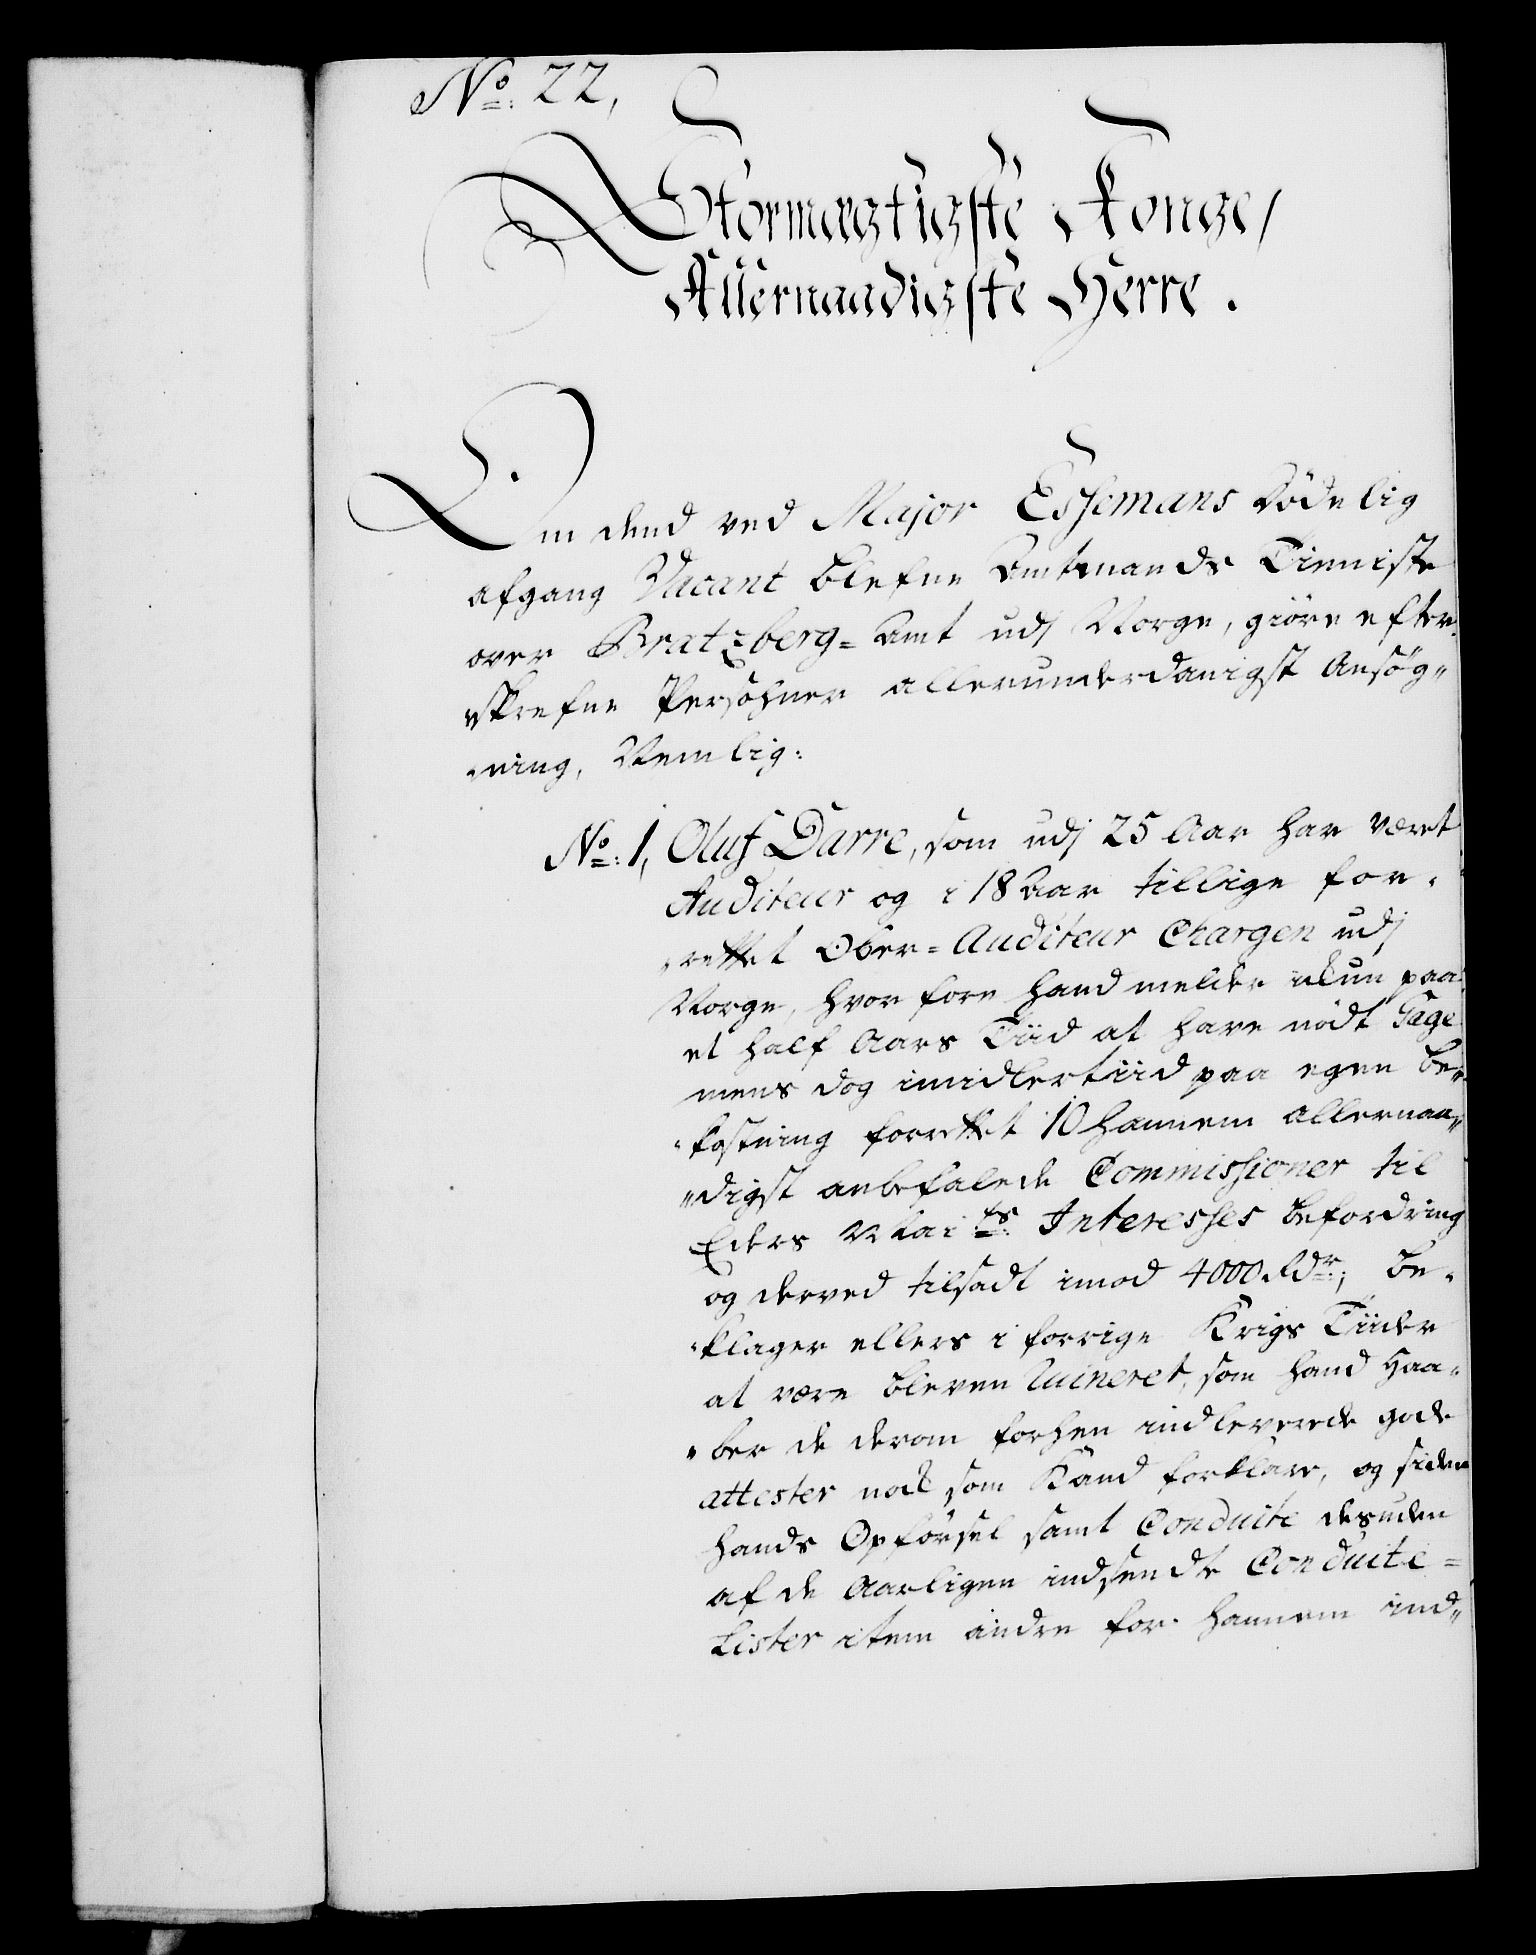 No: 22,
Stormægtigste Konge/
Allernaadigste Herre.
Om dend ved Major Essemans dödelig
afgang Vacant blefne Amtmands Tienniste
over Bratzberg= Amt udj Norge, giöre efter„
skrefne Persohner allerunderdanigst Ansög„
„ning, Nemlig:
No: 1, Oluf Darre, som udj 25 Aar har været
Auditeur og i 18 Aar tillige for„
„rettet Ober=Auditeur Chargen udj
Norge, hvor fore hand melder ickun paa
et half Aars Tiid at have nödt Gage
mens dog imidlertiid paa egen be„
„kostning forrettet 10 hannem allernaa„
„digst anbefalede Commissioner til
Eders Mai ts: Interesses befordring
og derved tilsadt imod 4000 Rdr:; be„
„klager ellers i forrige Krigs Tiider
at være bleven Ruineret, som hand haa„
„ber de derom forhen indleverede gode
attester nok som Kand forklare, og siden
hands Opförsel samt Conduite desuden
af de Aarligen indsendte Conduite=
Lister item andre for hannem ind„